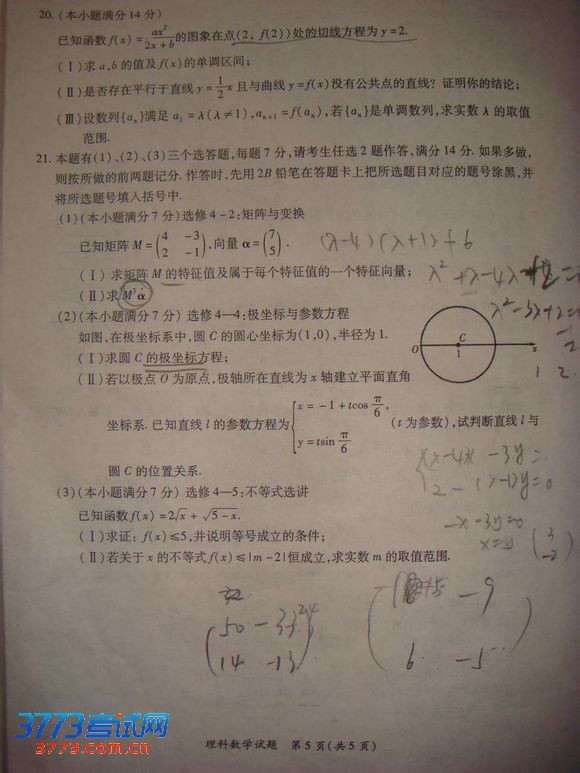 20. (本小题满分14分)
已知函数f(x)=ax²/(2x+b)的图象在点(2, f(2))处的切线方程为y=2.
(Ⅰ)求a,b的值及f(x)的单调区间;
(Ⅱ)是否存在平行于直线y=1/2 x且与曲线y=f(x)没有公共点的直线? 证明你的结论;
(Ⅲ)设数列{aₙ}满足a₁=λ(λ≠1),aₙ₊₁=f(aₙ),若{aₙ}是单调数列,求实数λ的取值
范围.
21. 本题有(1)、(2)、(3)三个选答题,每题7分,请考生任选2题作答,满分14分. 如果多做,
则按所做的前两题记分. 作答时,先用2B铅笔在答题卡上把所选题目对应的题号涂黑,并
将所选题号填入括号中.
(1)(本小题满分7分)选修4-2:矩阵与变换
已知矩阵M=(4 -3
2 -1),向量α=(7
5).
(λ-4)(λ+1)+6
(Ⅰ)求矩阵M的特征值及属于每个特征值的一个特征向量;
(Ⅱ)求M³α
λ²-3λ+2=
(2)(本小题满分7分) 选修4—4:极坐标与参数方程
如图,在极坐标系中,圆C的圆心坐标为(1,0),半径为1.
O C 1 x
(Ⅰ)求圆C的极坐标方程;
1 2
(Ⅱ)若以极点O为原点,极轴所在直线为x轴建立平面直角
坐标系. 已知直线l的参数方程为{x=-1+tcos π/6,
y=tsin π/6
(t为参数),试判断直线l与
圆C的位置关系.
(3)(本小题满分7分) 选修4—5:不等式选讲
已知函数f(x)=2√x+√(5-x).
(Ⅰ)求证: f(x)≤5,并说明等号成立的条件;
(Ⅱ)若关于x的不等式f(x)≤|m-2|恒成立,求实数m的取值范围.
-x-3y=0
x=-y
(3
-2)
-9
14 -13
6 -5
3773考试网
3773.com.cn
理科数学试题 第5页(共5页)